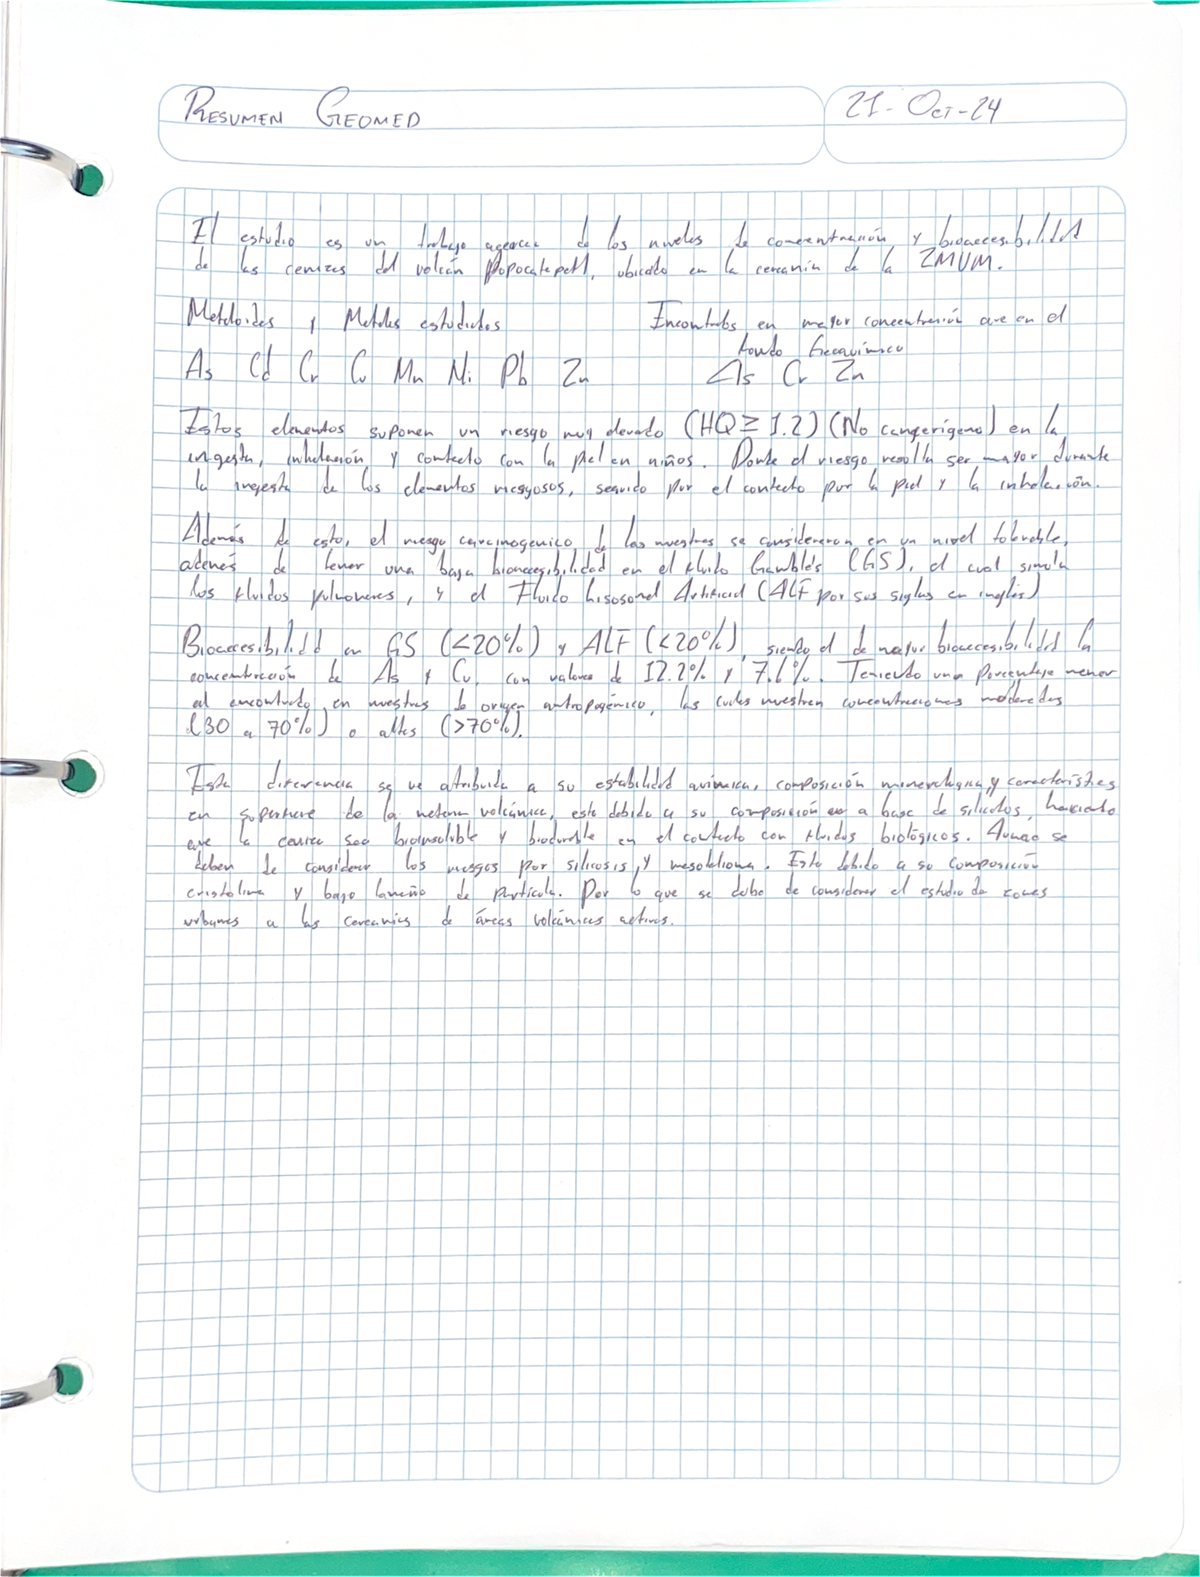 RESUMEN GEOMED
21-Oct-24
El estudio es un trabajo acerca de los niveles de concentración y bioaccesibilidad
de las cenizas del volcán Popocatepetl, ubicado en la cercanía de la ZMVM.
Metaloides y Metales estudiados
Encontrados en mayor concentración que en el
fondo Geoquímico
As Cd Cr Cu Mn Ni Pb Zn
As Cr Zn
Estos elementos suponen un riesgo muy elevado (HQ≥1.2) (No cangerigeno) en la
ingesta, inhalación y contacto con la piel en niños. Donde el riesgo resulta ser mayor durante
la ingesta de los elementos riesgosos, seguido por el contacto por la piel y la inhalación.
Además de esto, el riesgo carcinogenico de las muestras se consideraron en un nivel tolerable,
además de tener una baja bioaccesibilidad en el fluido Gambles (GS), el cual simula
los fluidos pulmonares, y el Fluido Lisosomal Artificial (ALF por sus siglas en inglés)
Bioaccesibilidad en GS (<20%) y ALF (<20%), siendo el de mayor bioaccesibilidad la
concentración de As y Cu, con valores de 12.2% y 7.1%. Teniendo una porcentaje menor
al encontrado en muestras de origen antropogénico, las cuales muestran concentraciones moderadas
(30 a 70%) o altas (>70%).
Esta diferencia se ve atribuida a su estabilidad química, composición mineralogica, y características
en superficie de la materia volcánica, esto debido a su composición a base de silicatos, haciendo
que la ceniza sea bioinsoluble y biodurable en el contacto con fluidos biológicos. Aunque se
deben de considerar los riesgos por silicosis, y mesotelioma. Esto debido a su composición
cristalina y bajo tamaño de partícula. Por lo que se debe de considerar el estudio de zonas
urbanas a las cercanías de áreas volcánicas activas.